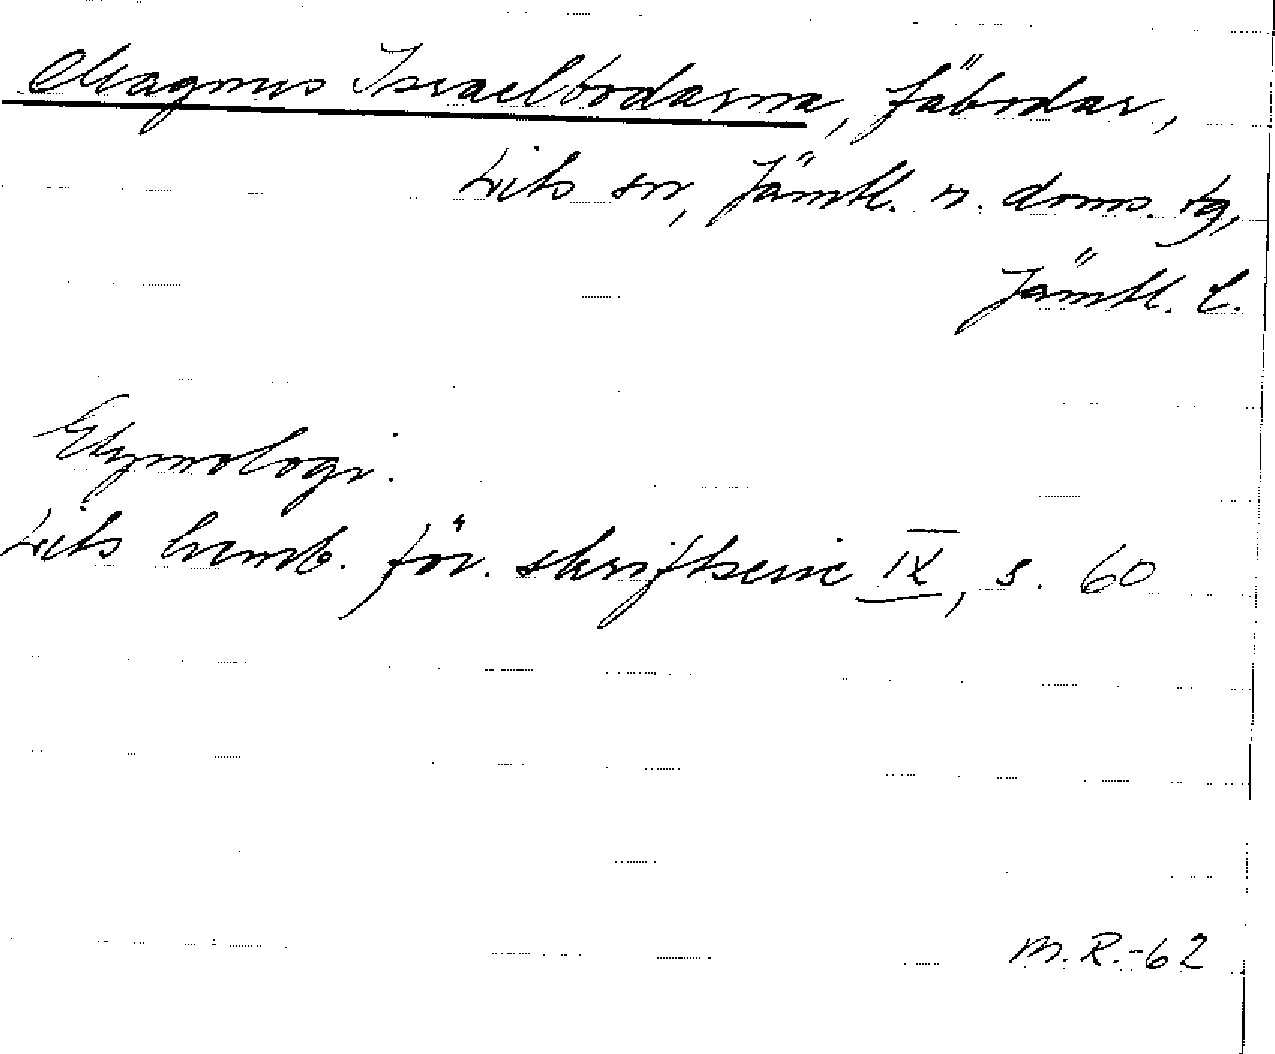 Magnus Israelbodarna, fäbodar,
Lits sn, Jämtl. n. doms. tg,
Jämtl. l.
Etymologi.
Lits hemb. för. skriftserie IX, s. 60
M. R. -62